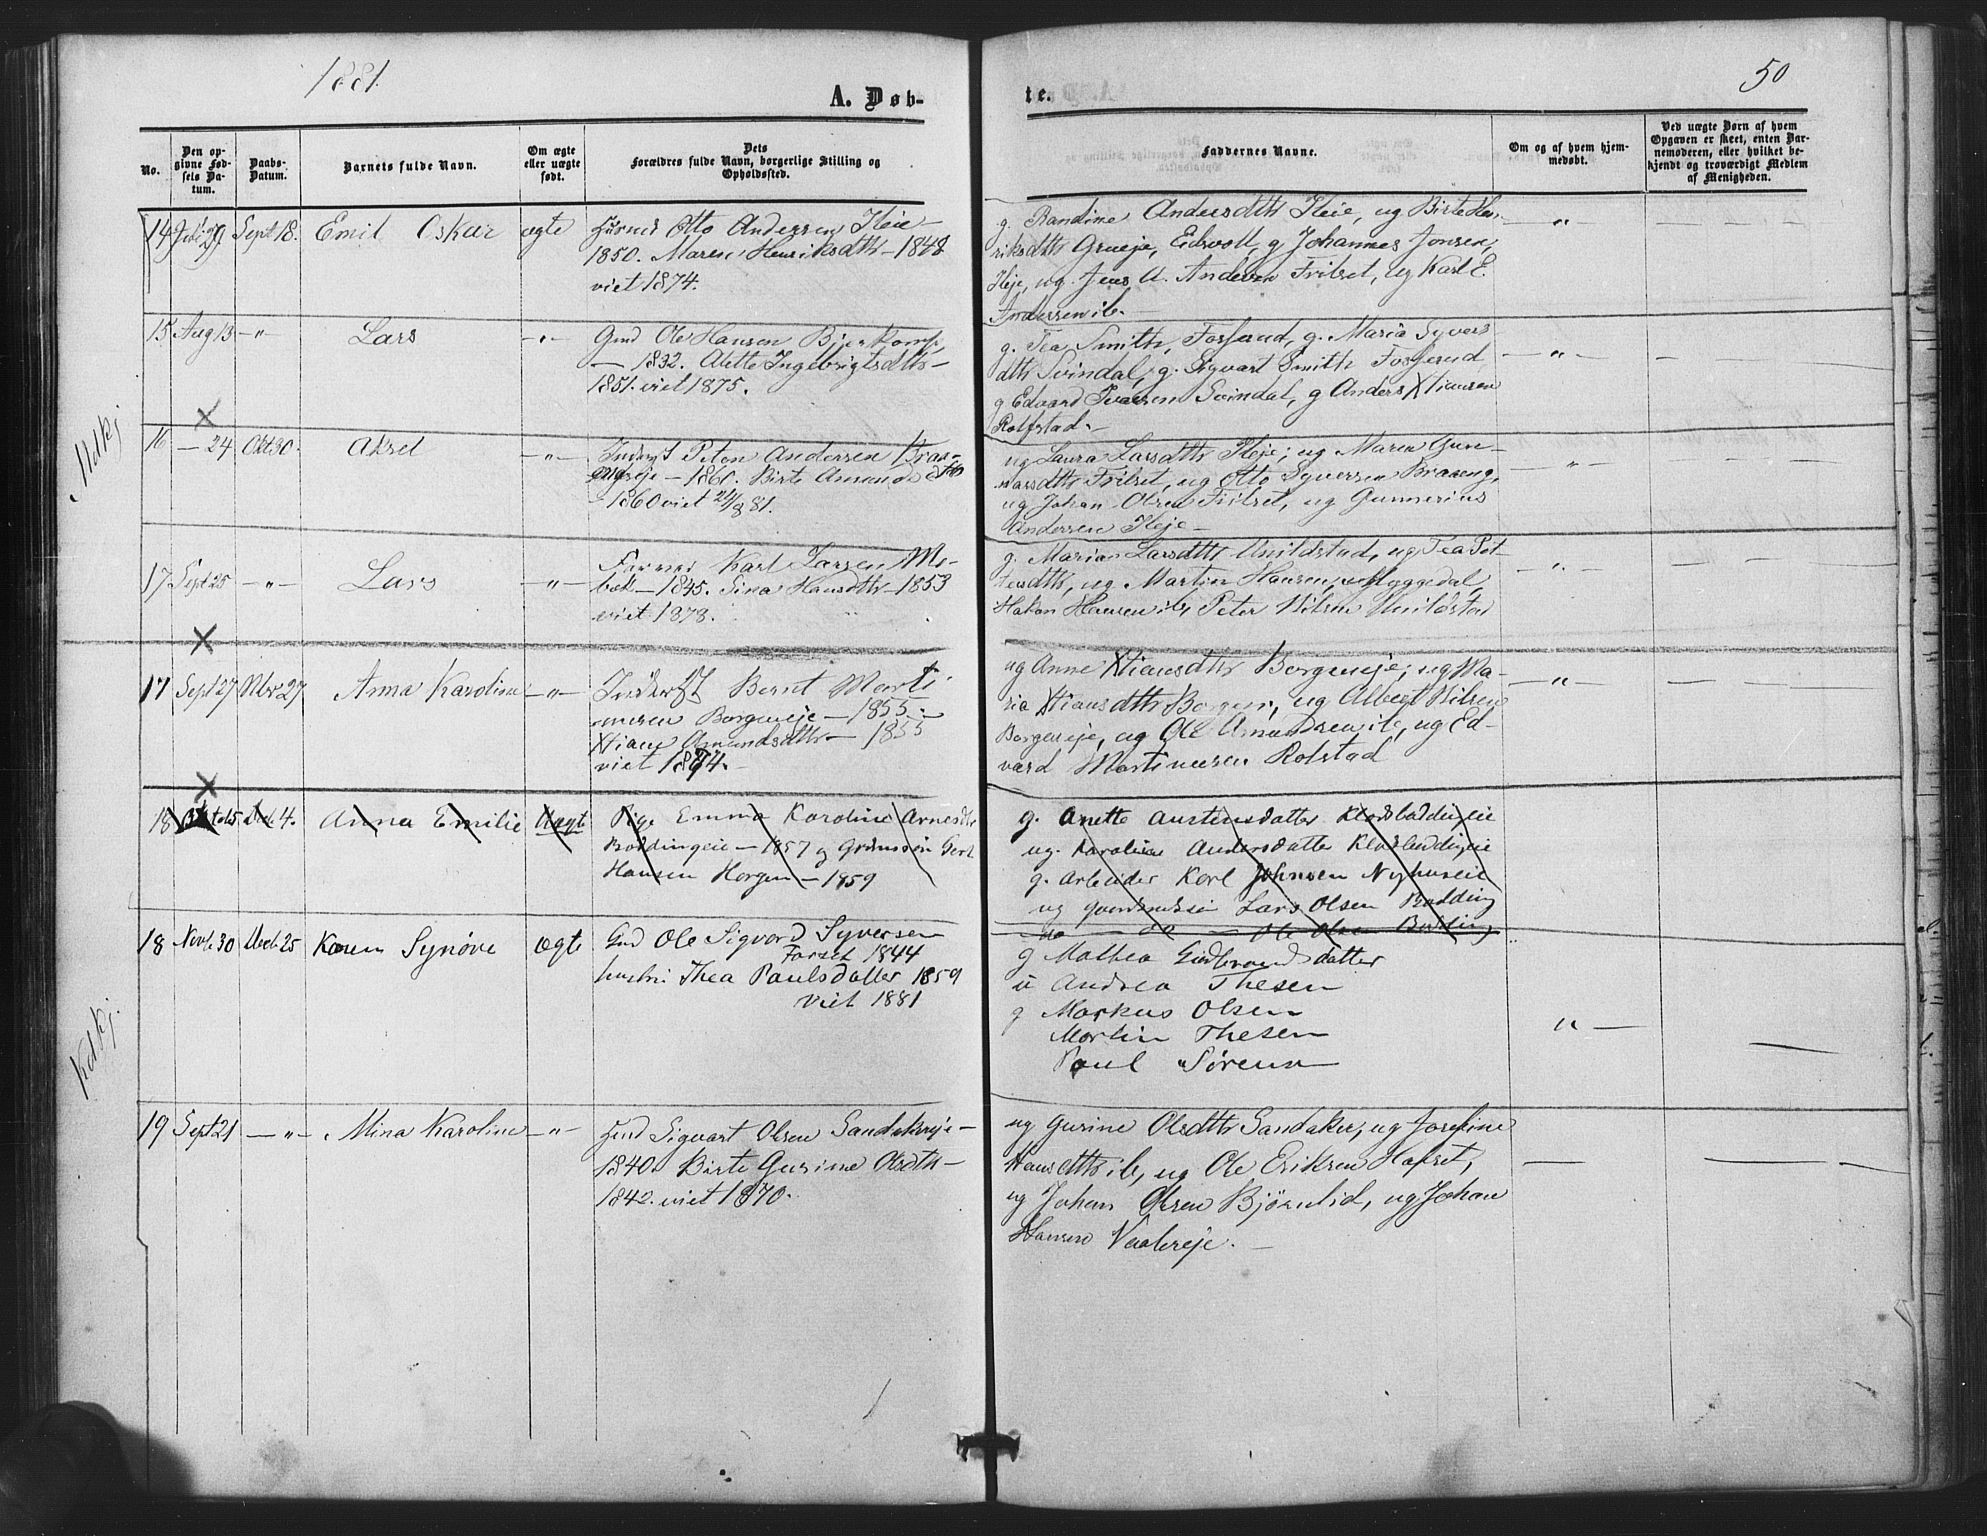 1881.
50
A. Døb-
te.
No.
Den op-
givne Fød-
sels Da-
tum.
Daabs-
Datum.
Barnets fulde Navn.
Om ægte
eller uægte
født.
Dets
Forældres fulde Navn, borgerlige Stilling og
Opholdssted.
Faddernes Navne.
Om og af hvem hjem-
medøbt.
Ved uægte Børn af hvem
Opgaven er skeet, enten Bar-
nemoderen, eller hvilket be-
kjendt og troværdigt Medlem
af Menigheden.
14 29 Sept 18. Emil Oskar ægte Otto Andersen Ileie -
1850. Maren Henriksdtr - 1848
viet 1874.
g. Andersdtr Ileie, ug Birte Hen-
riksdtr Grueeje, Eidsvoll, g Johannes Jonsen,
Ileje, ug. Jens A. Andersen Frilset, ug Karl E.
Andersen ib. -
15 Aug 13 - " - Lars - " - Gmd Ole Hansen
- 1832. Anette Ingebrigtsdtr -
1851. viet 1875.
g. Tea Smith, Fosserud, g. Maria Syvers-
dtr Svindal, g. Sigvart Smith Fosserud
g Edvard Svindal, g Anders Xtiansen
Rolfstad. -
Ndkj
16 - 24 Okt 30. Aksel - " - Inderst Peter Andersen Braa-
- 1860. Birte Amundsdtr
1860 viet 24/8 81.
ug Laura Larsdtr Ileje, ug Maren Gun-
narsdtr Frilset, ug Otto Syversen Braaeng,
ug Johan Olsen Frilset, ug Gunnerius
Andersen Ileje -
17 Sept 25 - " - Lars - " - Karl Larsen Mo-
- 1845. Sina Hansdtr - 1853
viet 1878.
g. Maria Larsdtr Unildstad, ug Tea Pet-
tersdtr, ug Martin Hansen Myggedal,
Hakon Hansen ib, Peter Nilsen Unildstad
17 Sept 27 Nbr 27 Anna Karoline - " - Inderst Bernt Marti-
nusen Borgeneje - 1855.
Xtiane Amundsdtr - 1855
viet 1874.
ug Anne Xtiansdtr Borgeneje, ug Ma-
ria Xtiansdtr Borgen, ug Albert Nilsen
Borgeneje, ug Ole Amundsen ib, ug Ed-
vard Martinusen Rolstad
18 Decb 4. Anna Emilie Uægt Pige Emma Karoline Arnesdtr
Boddingeie - 1857 og Grdmssøn
Hansen Horgen - 1859
g. Anette Austensdatter
ug. Karoline Andersdatter
g. Arbeider Karl Johnsen Nyhuseie
ug Lars Olsen Bodding
do - do - Ole Olsen Bodding
18 Novb. 30 Decb. 25 Karen Synøve ægte Gmd Ole Sigvard Syversen
Forset 1844
hustru Thea Paulsdatter 1859
viet 1881
g Mathea Gudbrandsdatter
u Andrea Thesen
g Markus Olsen
Martin Thesen
Paul Sørensen
Kdkj.
19 Sept 21 - " - Mina Karoline - " - Gmd Sigvart Olsen Sandakereje -
1840. Birte Gurine Olsdtr -
1842. viet 1870.
ug Gurine Olsdtr Sandaker, ug Josefine
Hansdtr ib, ug Ole Eriksen Hofset,
ug Johan Olsen Bjørnlid, ug Johan
Hansen Vaalereje. -